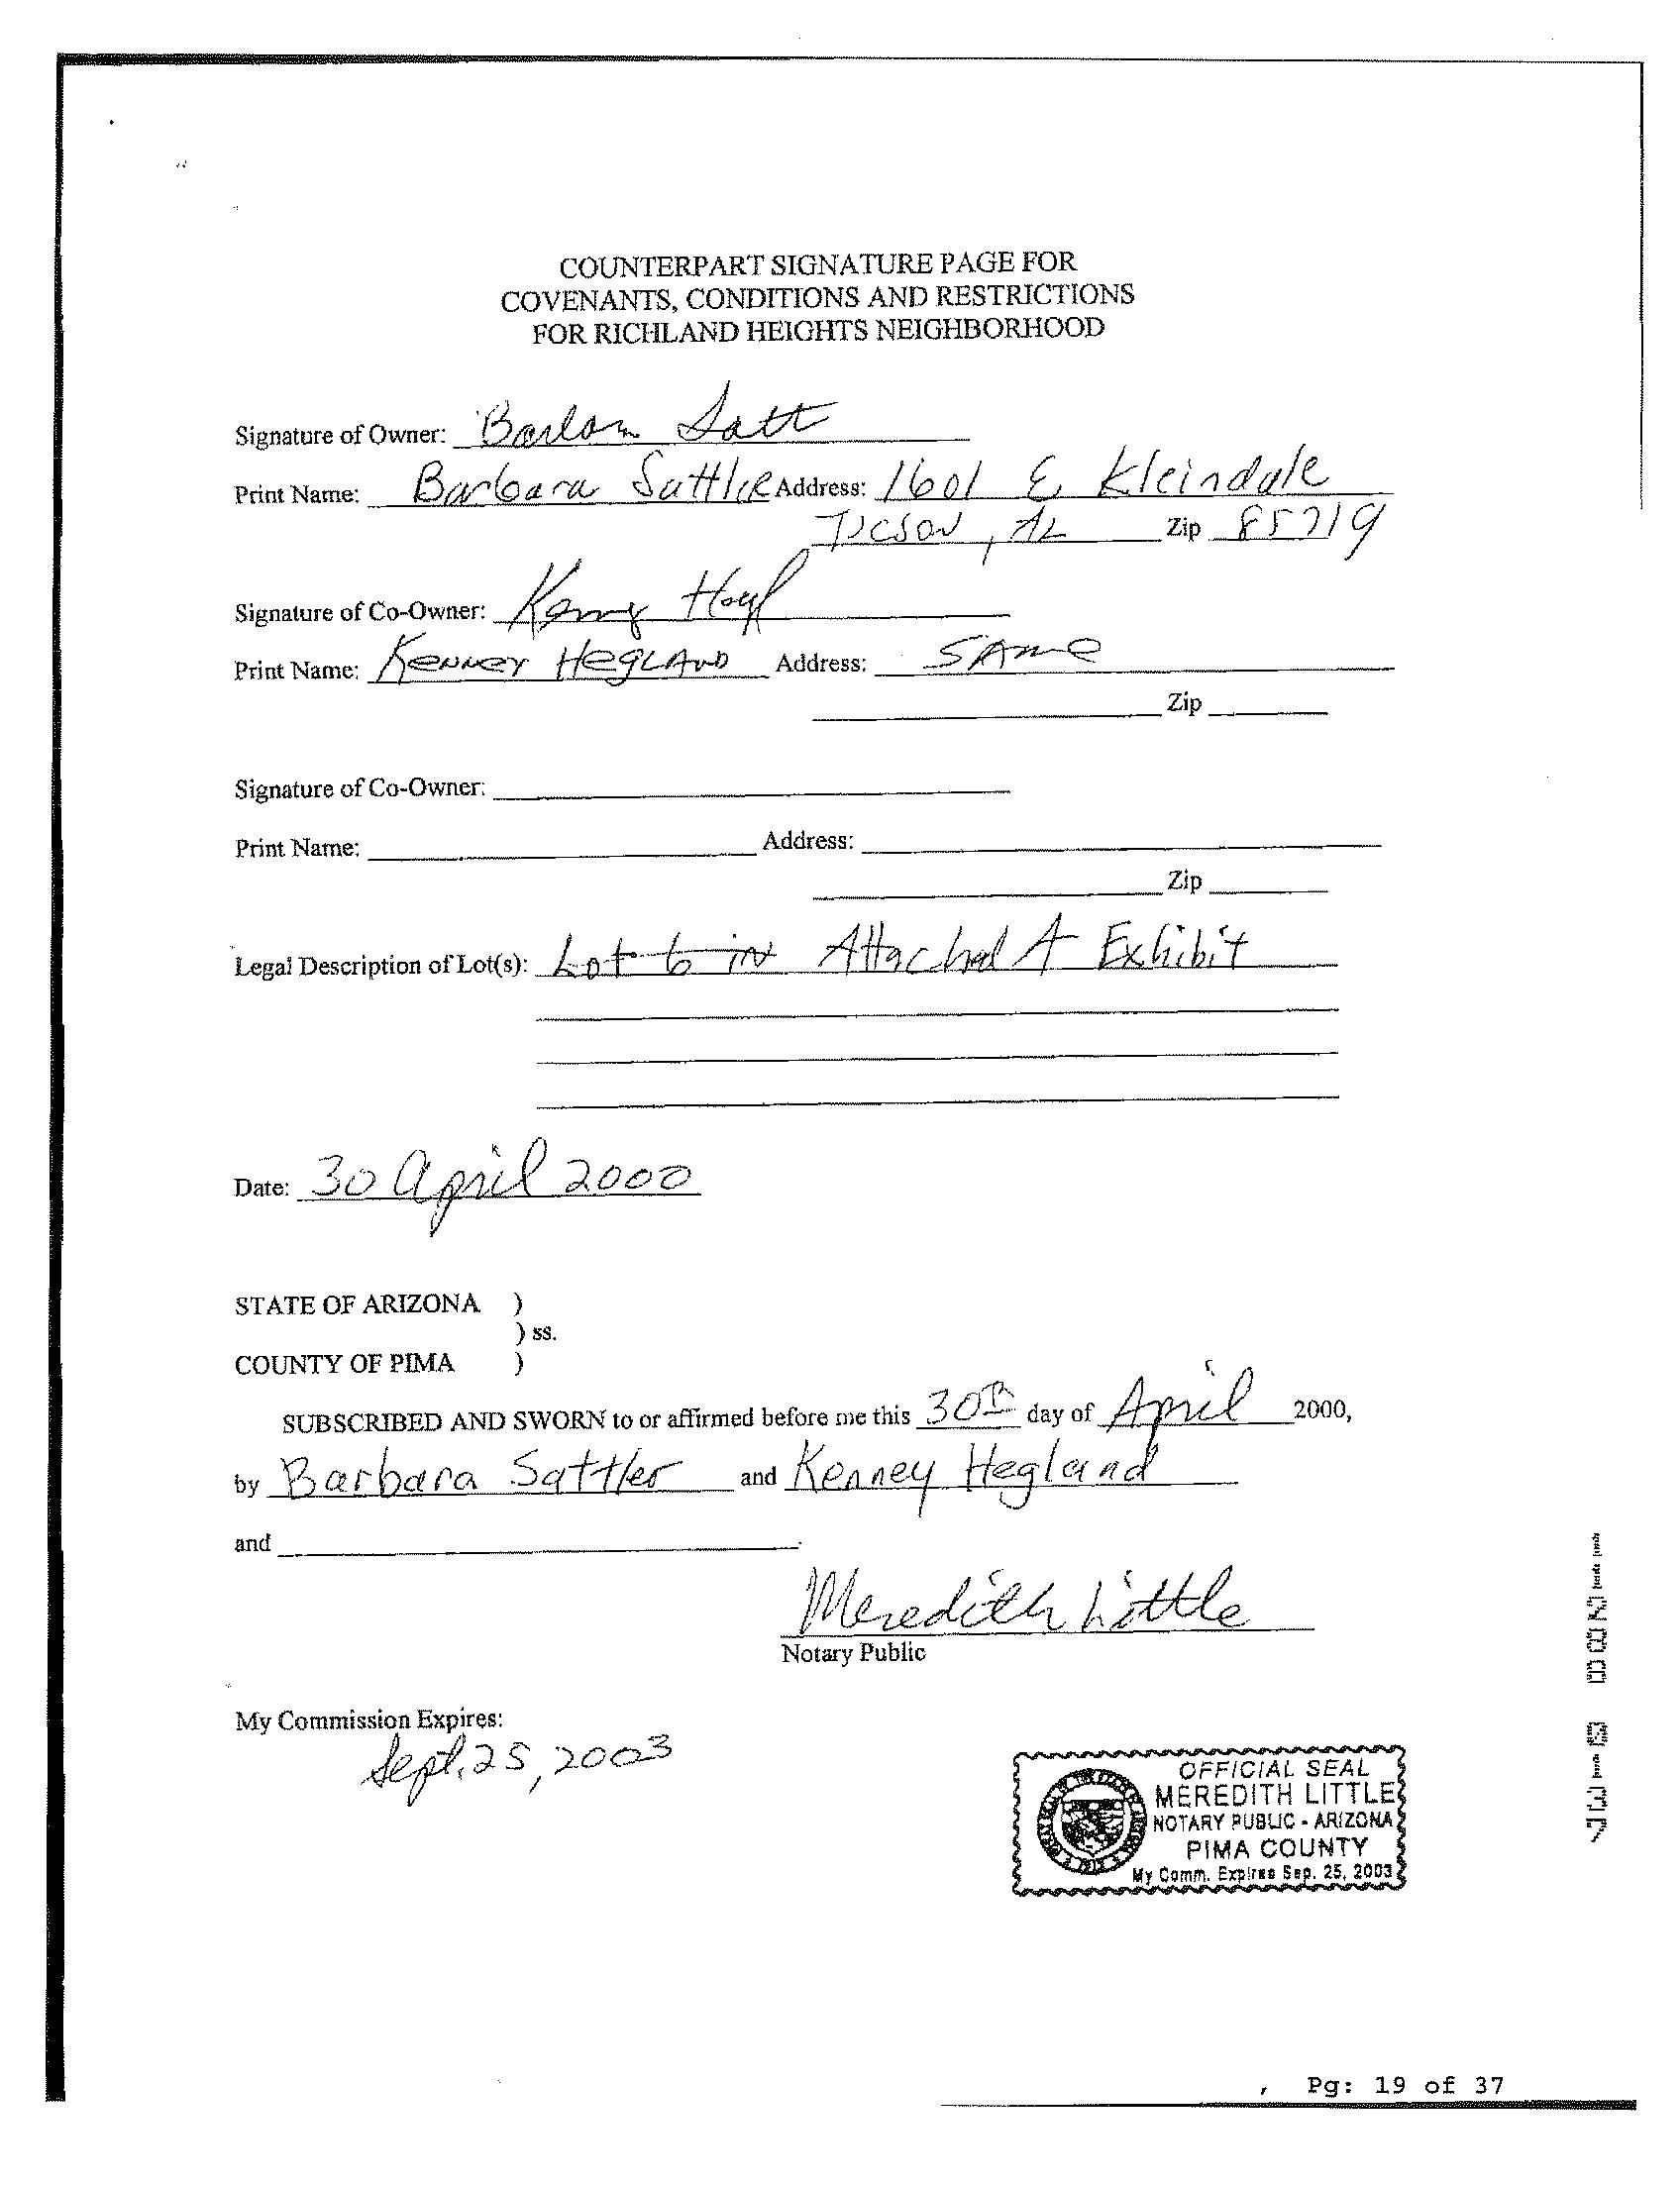 COUNTERPART SIGNATURE PAGE FOR
COVENANTS, CONDITIONS AND RESTRICTIONS
FOR RICHLAND HEIGHTS NEIGHBORHOOD
Signature of Owner: Barbara Satt
Print Name: Barbara Sattler Address: 1601 E Kleindale
Tucson, AZ Zip 85719
Signature of Co-Owner: Kenney Hegl
Print Name: Kenney Hegland Address: SAme
Zip
Signature of Co-Owner:
Print Name: Address:
Zip
Legal Description of Lot(s): Lot 6 in Attached A Exhibit
Date: 30 April 2000
STATE OF ARIZONA )
) ss.
COUNTY OF PIMA )
SUBSCRIBED AND SWORN to or affirmed before me this 30th day of April 2000,
by Barbara Sattler and Kenney Hegland
and
Meredith Little
Notary Public
My Commission Expires:
Sept. 25, 2003
OFFICIAL SEAL
MEREDITH LITTLE
NOTARY PUBLIC - ARIZONA
PIMA COUNTY
My Comm. Expires Sep. 25, 2003
, Pg: 19 of 37